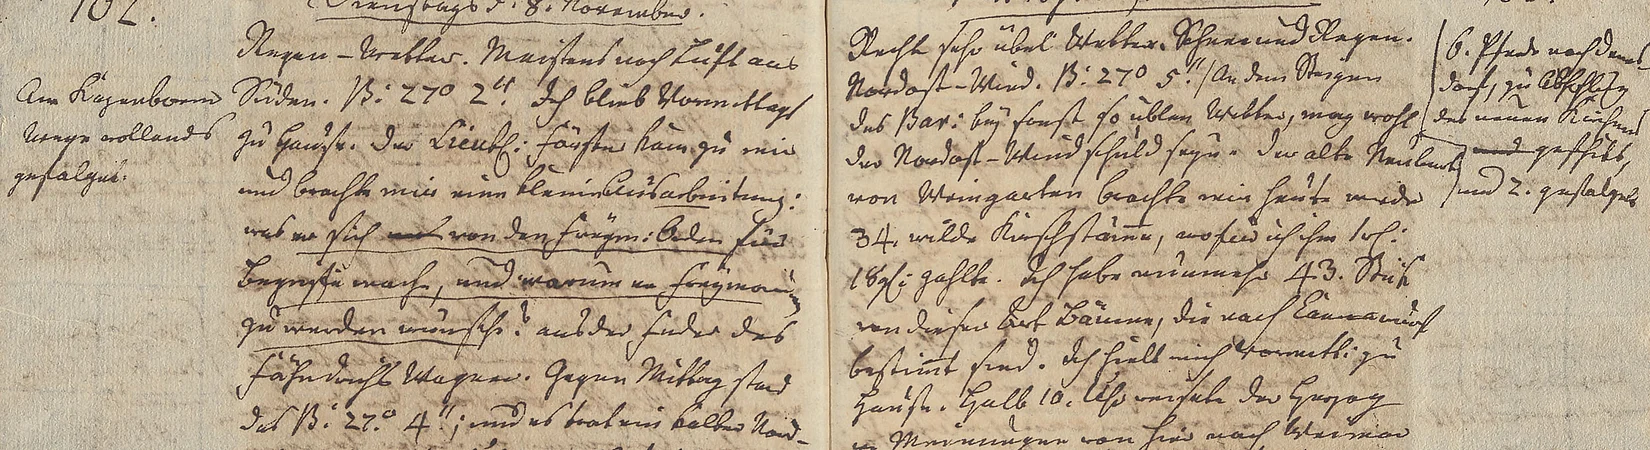 102.
Dienstags d. 8. November.
Regen-Wetter. Meistens noch Luft aus
Süden. B: 27° 2‴. Ich blieb Vormittags
zu Hause. Der Lieut: Förster kam zu mir
und brachte mir eine kleine Ausarbeitung:
was er sich von den Freym: Orden für
Begriffe mache, und warum er Freymaur:
zu werden wünsche? aus der Feder des
Fähndrichs Wagner. Gegen Mittag stand
das B: 27.° 4‴; und es trat ein kalter Nord-
Am
Wege vollends
gefolget.
Recht sehr übel Wetter. Schnee und Regen.
Nordost-Wind. B: 27° 5‴. / An dem Steigen
des Bar: bey sonst so üblen Wetter, mag wohl
der Nordost-Wind schuld seyn. Der alte
von Weingarten brachte mir heute wieder
34. wilde Kirschstämme, wofür ich ihm 1 rh:
18 gl: zahlte. Ich habe nunmehr 43. Stück
von dieser Art Bäume, die nach
bestimmt sind. Ich hielt mich Vormitt: zu
Hause. Halb 10. Uhr reisete der Herzog
v. Meinungen von hier nach Weimar
6. Pferde nach
dorf, zu
der neuen
und
und 2.